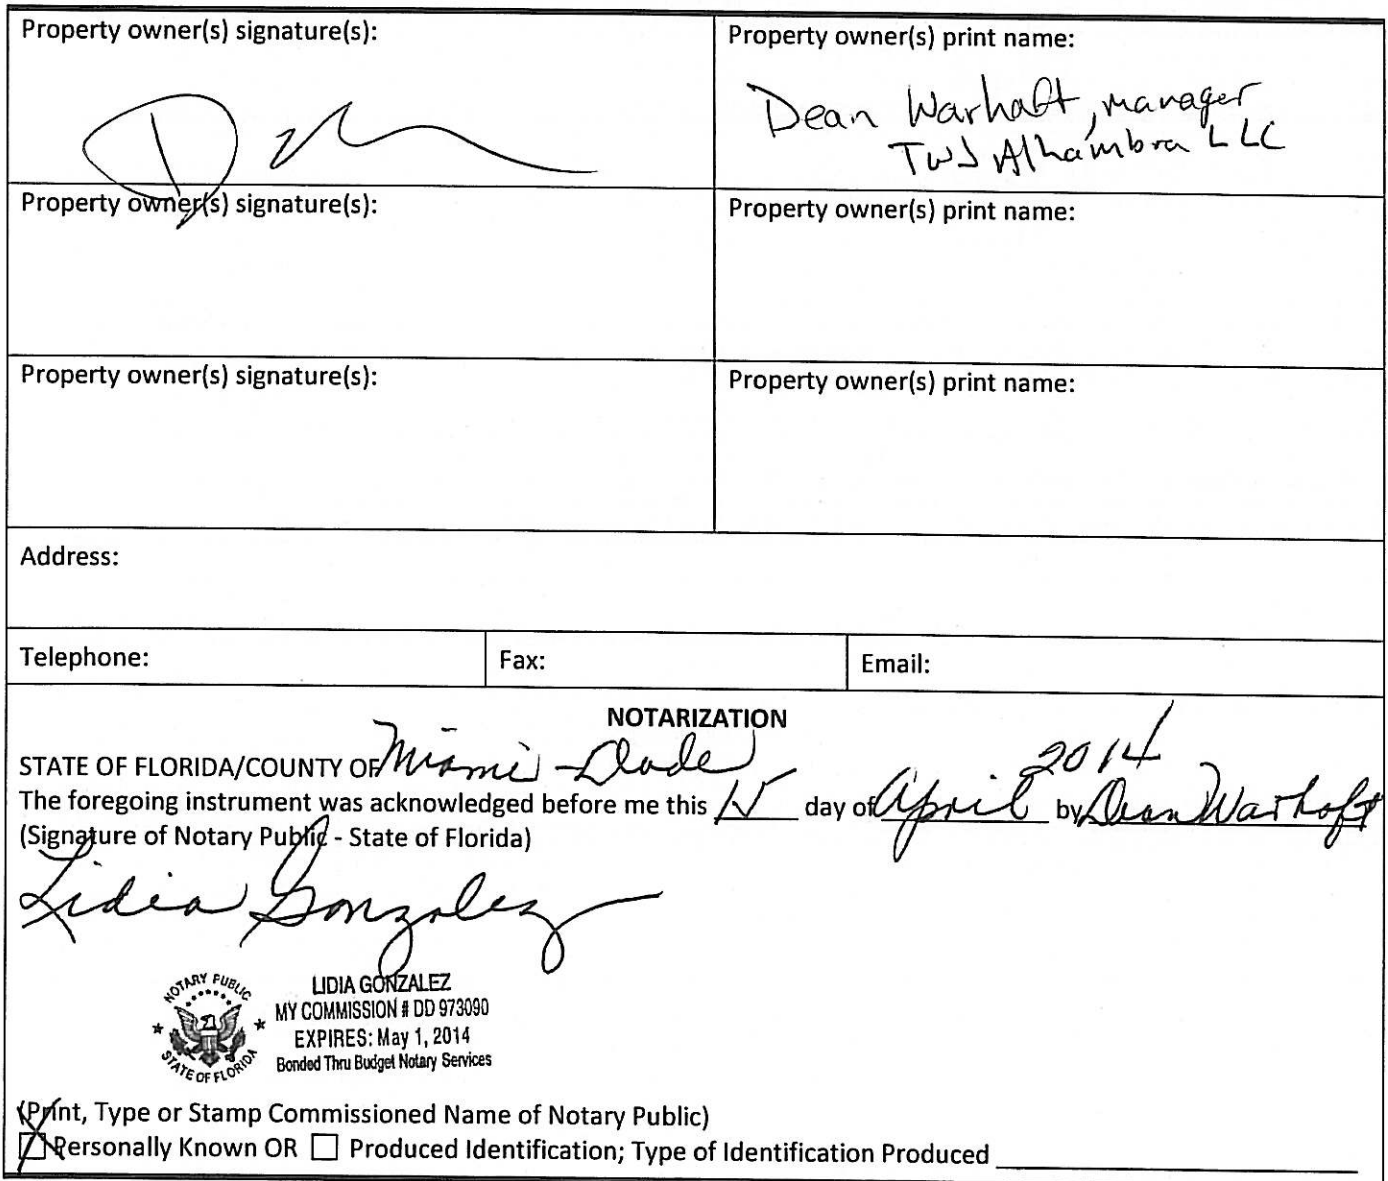 Property owner(s) signature(s):
Property owner(s) print name:
Dean Warhaft, manager
TWJ Alhambra LLC
Property owner(s) signature(s):
Property owner(s) print name:
Property owner(s) signature(s):
Property owner(s) print name:
Address:
Telephone:
Fax:
Email:
NOTARIZATION
2014
STATE OF FLORIDA/COUNTY OF Miami-Dade
The foregoing instrument was acknowledged before me this day of April by Dean Warhaft
(Signature of Notary Public - State of Florida)
Lidia Gonzalez
NOTARY PUBLIC
STATE OF FLORIDA
LIDIA GONZALEZ
MY COMMISSION # DD 973090
EXPIRES: May 1, 2014
Bonded Thru Budget Notary Services
(Print, Type or Stamp Commissioned Name of Notary Public)
Personally Known OR ☐ Produced Identification; Type of Identification Produced